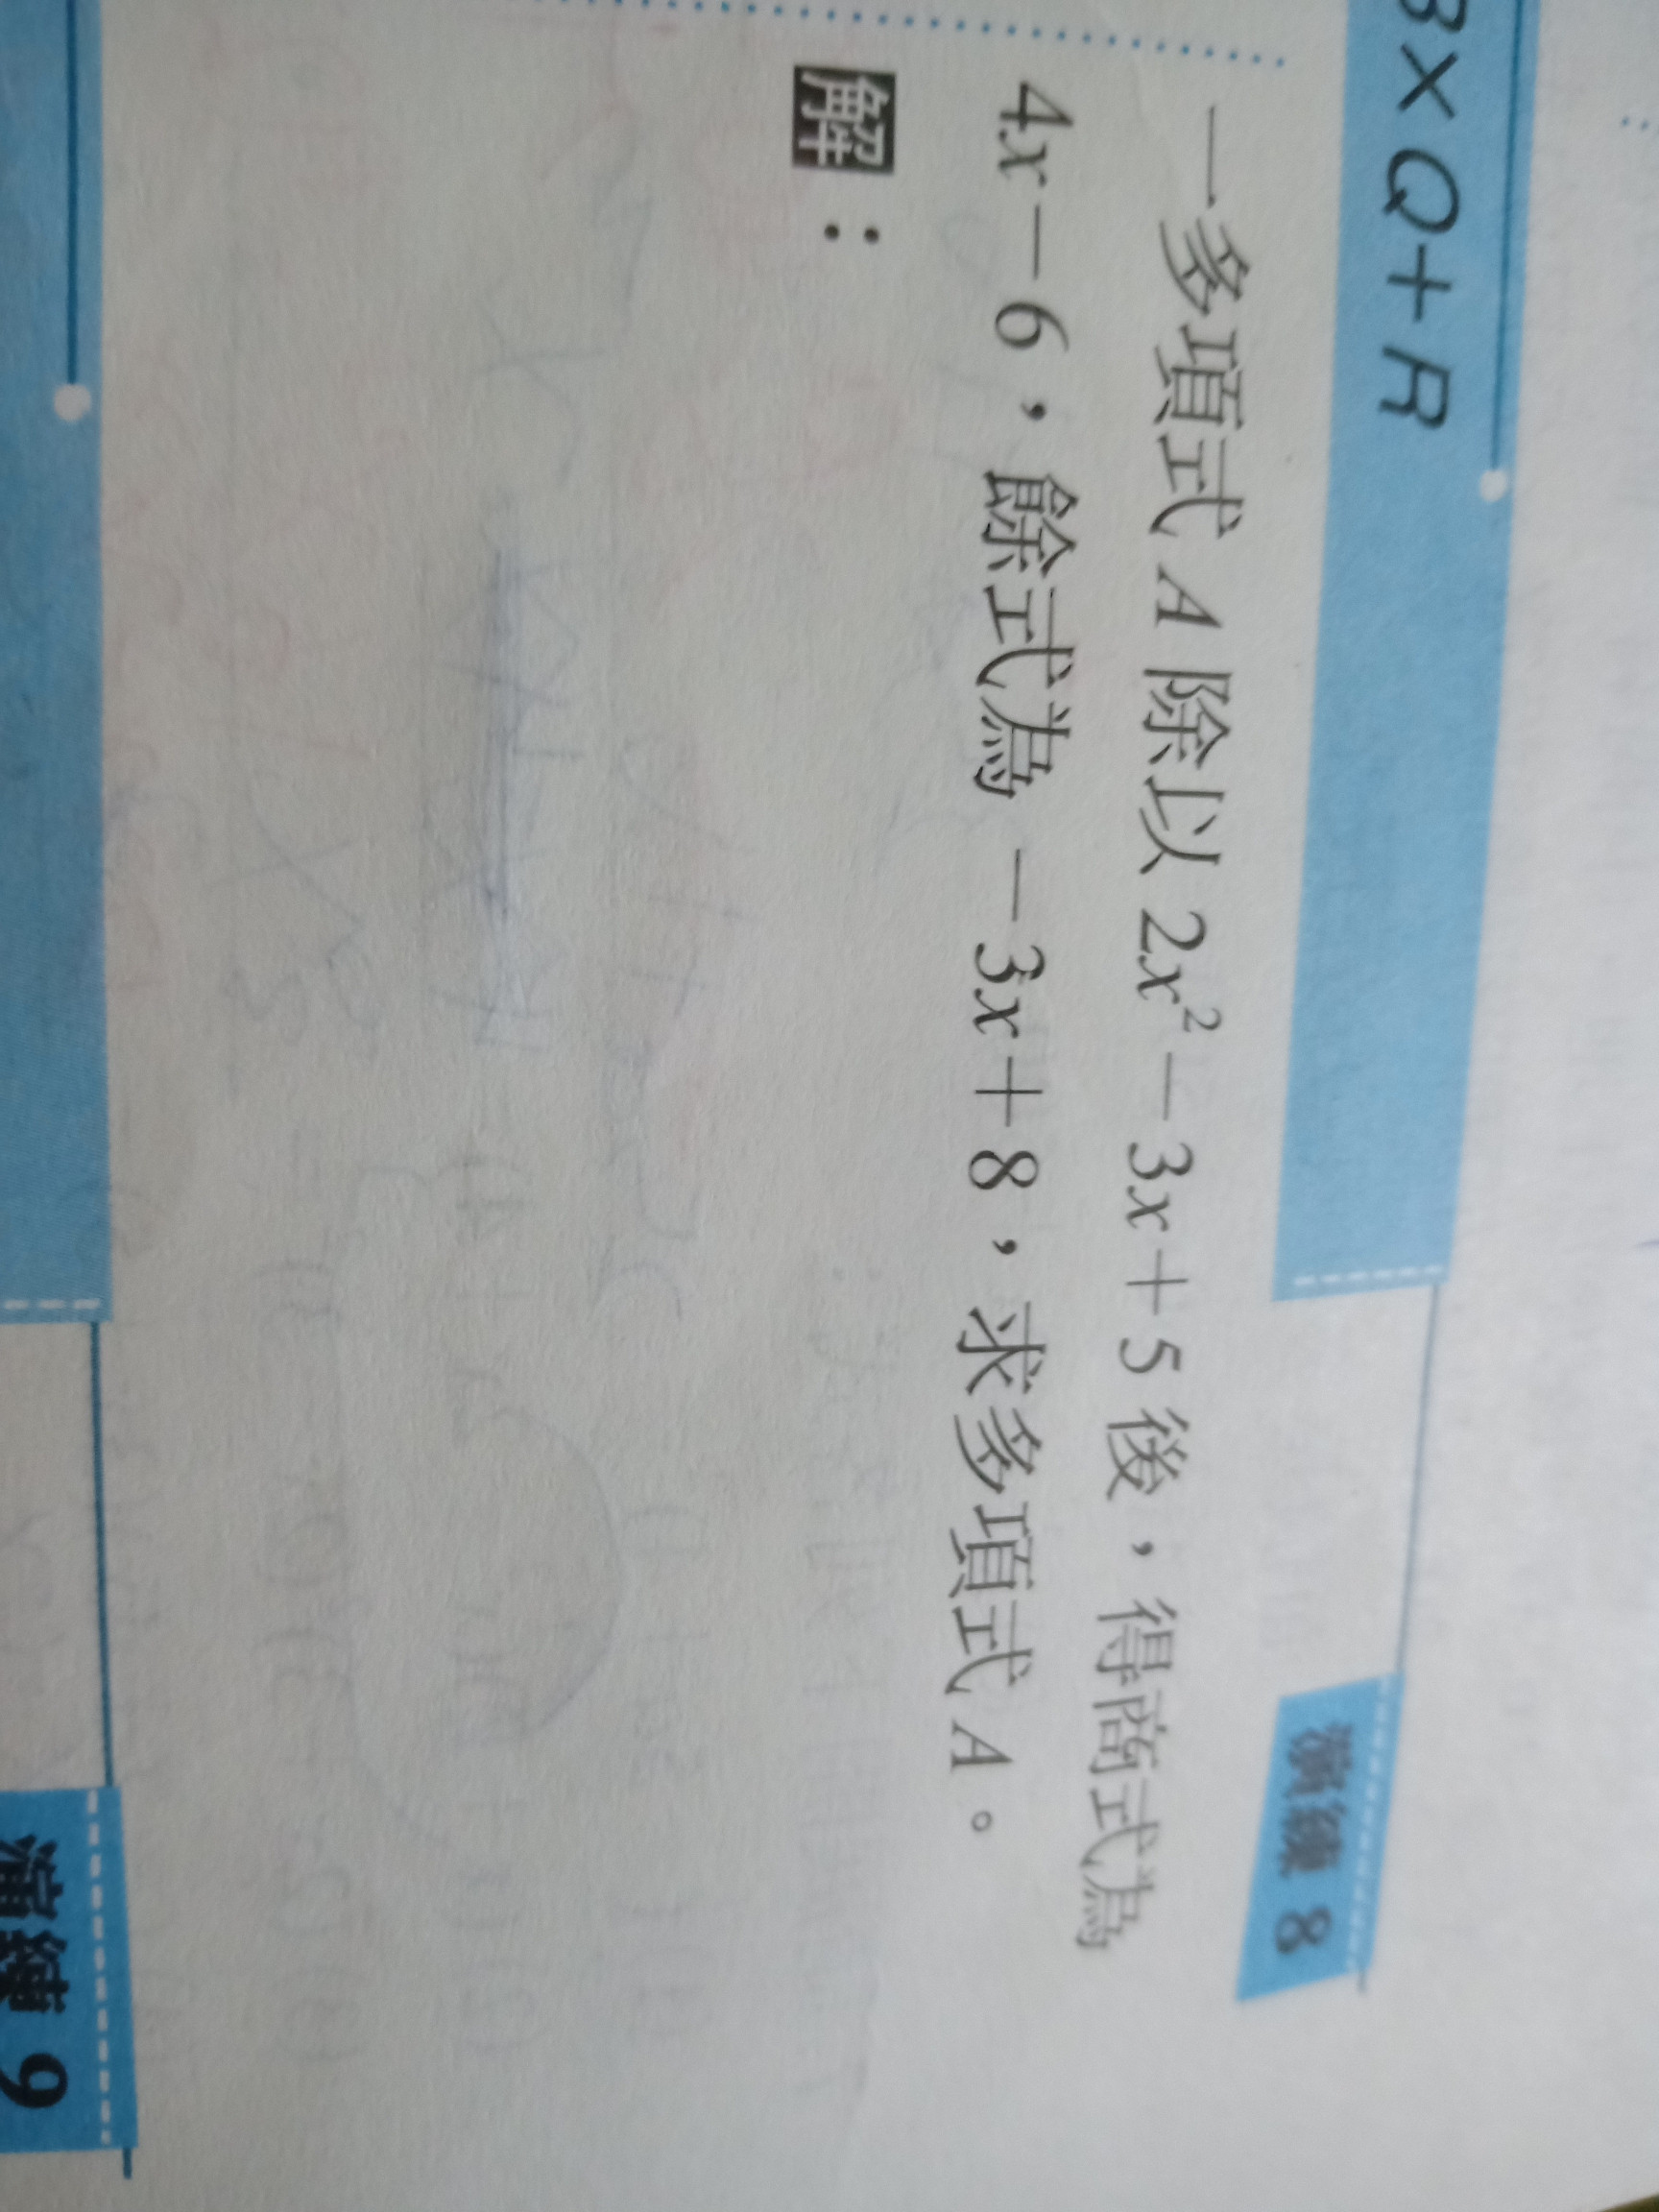 B×Q+R
演練 8
一多項式 A 除以 2x²－3x＋5 後，得商式為
4x－6，餘式為 －3x＋8，求多項式 A。
解：
演練 9